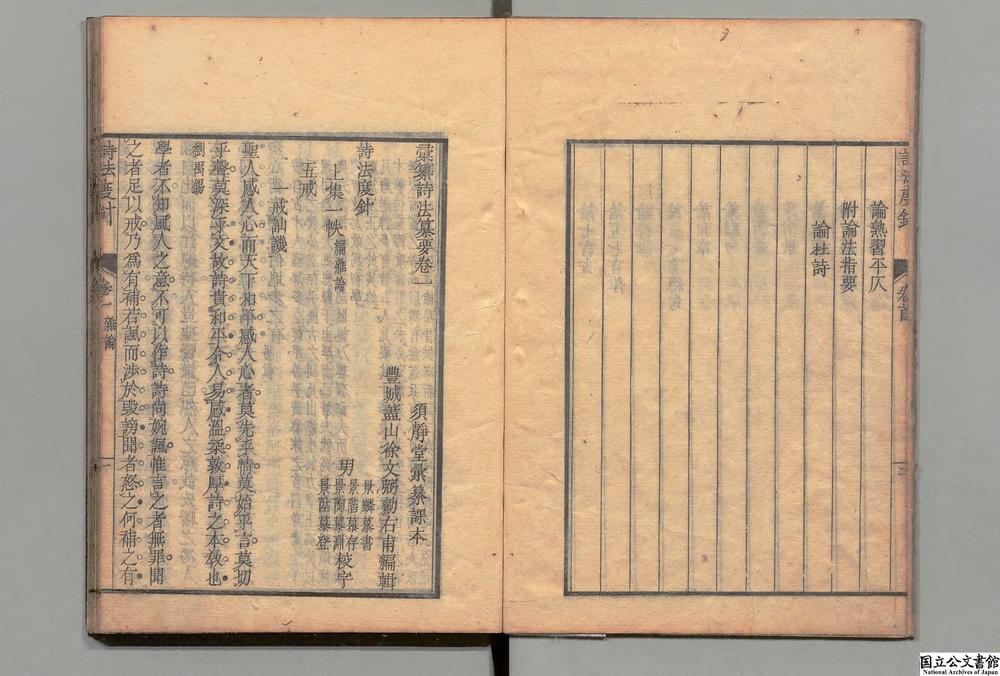 論熟習平仄
附論法指要
論杜詩
詩法度針
卷首
三
彙纂詩法纂要卷一
須靜堂彙纂課本
豐城蓋山徐文弼勷右甫編輯
景麟慕書
景階慕存
男 校字
景陶慕淵
景陞慕登
詩法度針
上集一帙編雜論
五戒
一戒訕譏
聖人感人心而天下和平感人心者莫先乎情莫始乎言莫切
乎聲莫深乎文故詩貴和平令人易感溫柔敦厚詩之本敎也
劉禹錫
學者不知風人之意不可以作詩詩尚婉諷惟言之者無罪聞
之者足以戒乃爲有補若諷而涉於毀謗聞者怒之何補之有
詩法度針
卷一 雜論
一
国立公文書館
National Archives of Japan